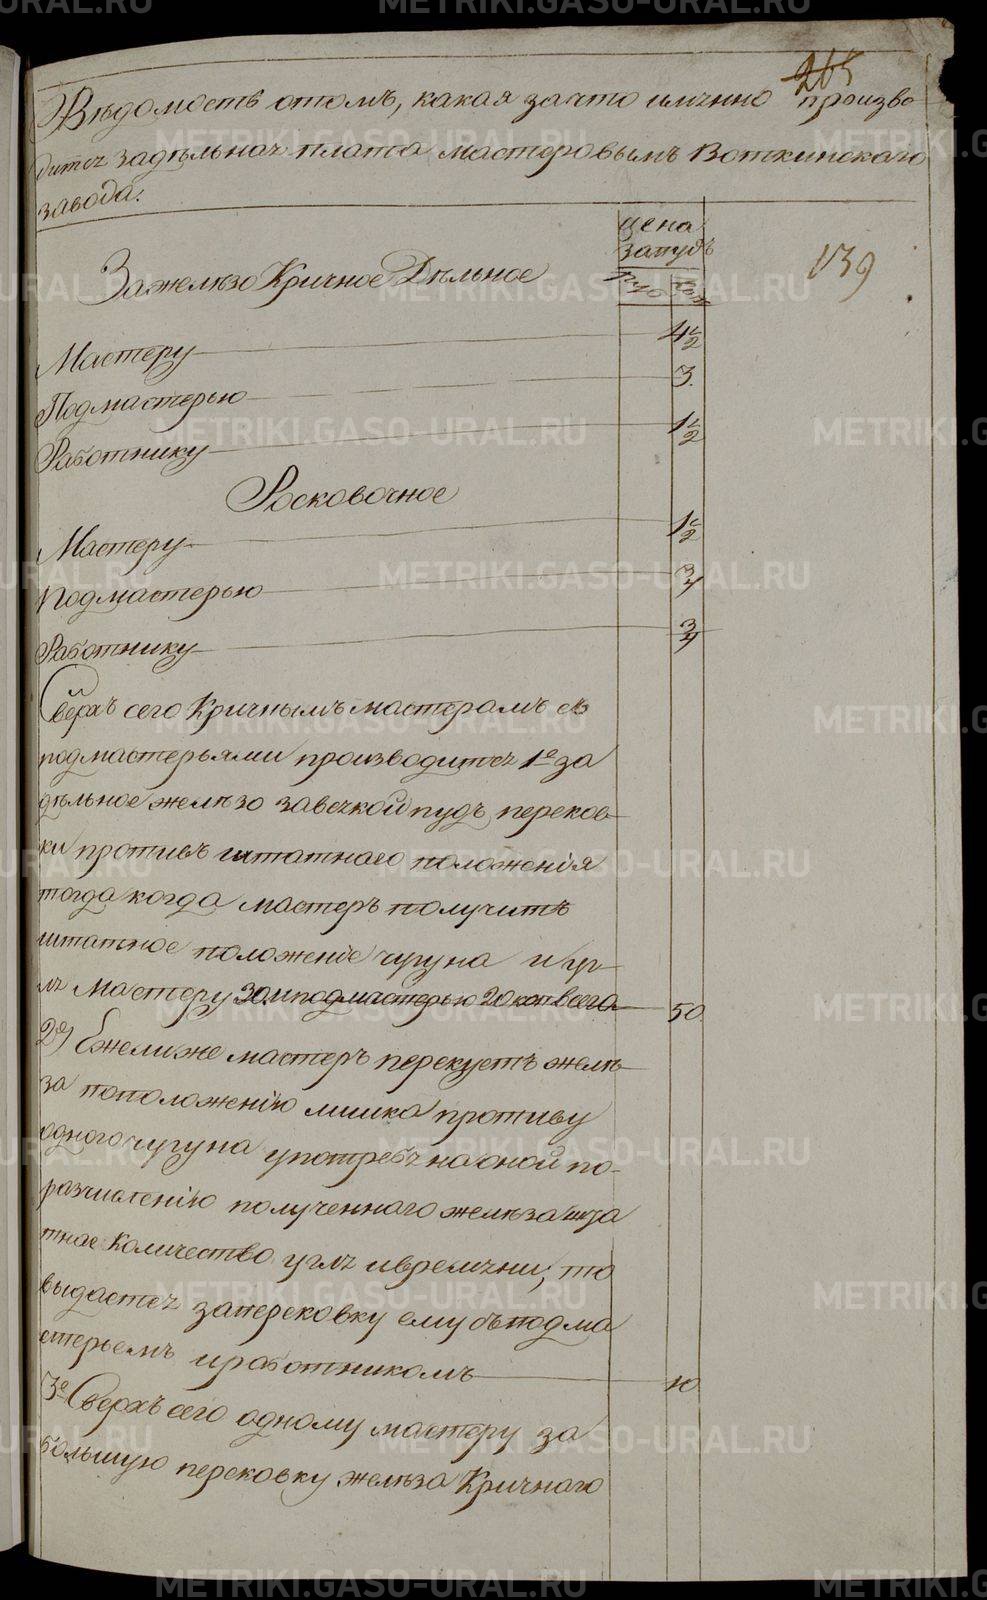 265
Вѣдомость отомъ, какая зачто имянно произво
дится задѣльная плата мастеровымъ Воткинского
завода.
цена
запудъ
139
Зажелѣзо Кричное Дѣльное
руб коп
Мастеру 4 1/2
Подмастерью 3.
Работнику 1 1/2
Росковочное
Мастеру 1 1/2
Подмастерью 3/4
Работнику 3/4
Сверхъ сего Кричнымъ мастерамъ съ
подмастерьями производится 1е за
дѣльное желѣзо завсякой пудъ перековки
ки противъ штатнаго положенія
тогда когда мастеръ получитъ
штатное положеніе чугуна и уг
ля мастеру 30 и подмастерью 20 коп всего 50
2е) Ежелиже мастеръ перекуетъ желѣ
за поположенію лишка противу
одного чугуна употребя на оной по
разчисленію полученного желѣза шта
тное количество угля ивремѧни, то
выдастся заперековку ему съподма
стерьемъ иработникомъ 10
3е Сверхъ сего одному мастеру за
большую перековку желѣза Кричнаго
METRIKI.GASO-URAL.RU